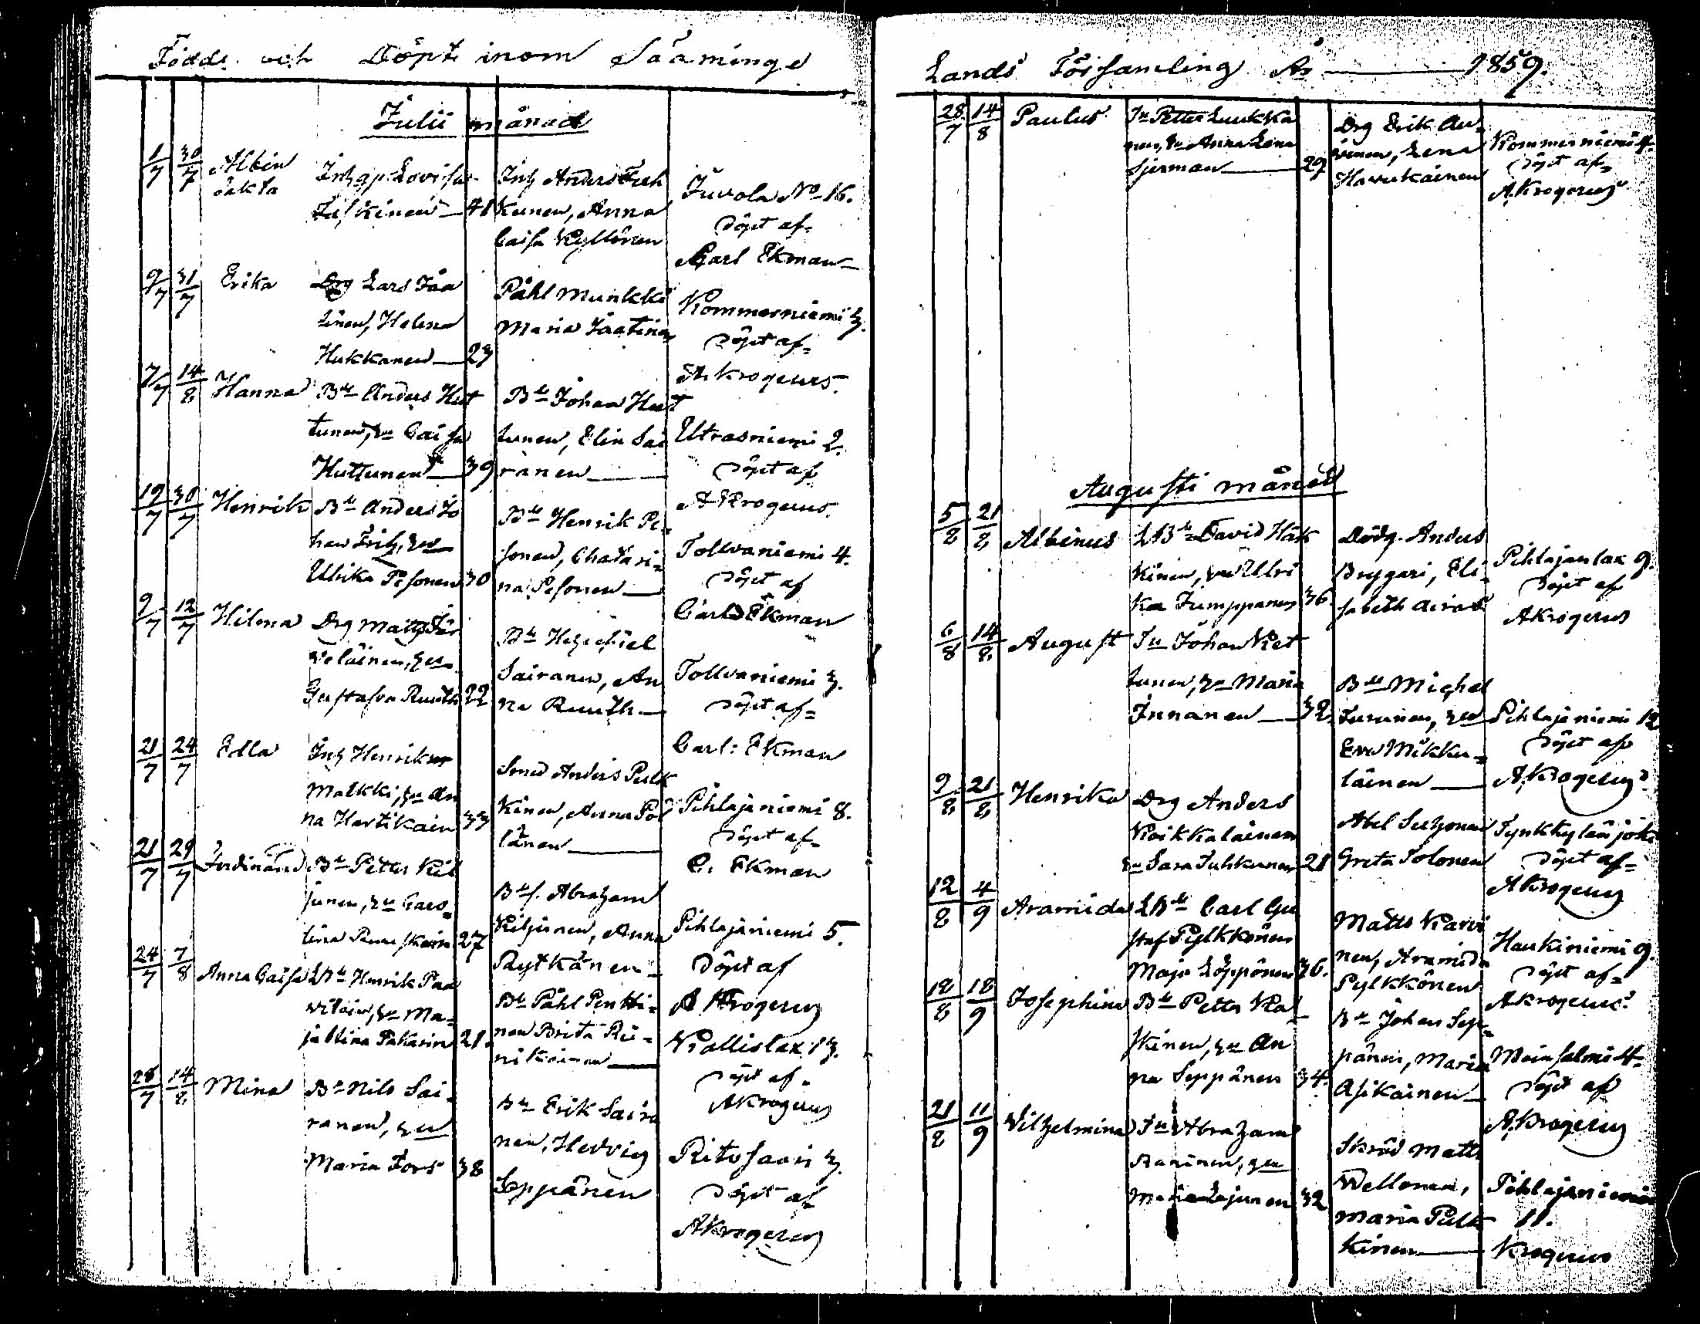 Födde och Döpte inom Sääminge
Julii månad
1/7 30/7 Albin
oäkta
Inhs Anders
Juvola No 16.
kunen, Anna
döpt af
Caisa Kyllönen
Carl Ekman
9/7 31/7 Erika
Drg Lars Jaa
tinen, Helena
Hukkanen 23
Påhl Munkki
Maria Jaatinen
Kommerniemi 3.
döpt af
A Krogerus.
7/7 14/8 Hanna
Bde Anders Hut
tunen, hu Caisa
Huttunen 39
Bde Johan Hut
tunen, Elin Sai
ranen
Utrasniemi 2.
döpt af
A Krogerus.
19/7 30/7 Henrik
Bde Anders Jo
Ulrika Pesonen 30
Bde Henrik Pe-
sonen, Chatari-
na Pesonen
Tollvaniemi 4.
döpt af
Carl Ekman
9/7 12/7 Hilena
Drg Matts Tar
velainen, hu
Gustafva Ruuth 22
Bde Hesechiel
Sairanen, An
na Ruuth
Tollvaniemi 3.
döpt af
Carl: Ekman
21/7 24/7 Edla
Inh Henrik
Malkki, hu An
na Hartikain 33
Smed Anders Pulk
kinen, Anna Pöl
länen
Pihlajaniemi 8.
döpt af
C. Ekman
21/7 29/7 Ferdinand
Bde Petter Kil
junen, hu Caro-
lina 27
Bdes. Abraham
Kiljunen, Anna
Rytkänen
Pihlajaniemi 5.
Döpt af
A Krogerus
24/7 7/8 Anna Caisa
LBde Henrik Paa
vilain, hu Ma-
ja Stina Pakarin 21.
Bde Påhl Pentti-
nen Brita Rii-
nikainen
Kallislax 13.
döpt af
A Krogerus
28/7 14/8 Mina
Bde Nils Sai-
ranen, hu
Maria Fors 38
Bde Erik Saira
nen, Hedvig
Seppänen
Ritosaari 3.
döpt af
A Krogerus
Lands Församling År 1859.
28/7 14/8 Paulus
In Petter Luukka
nen, hu Anna Lena
Sjerman 29
Drg Erik Au-
vinen, Lena
Havukainen
Kommerniemi 4.
döpt af
A Krogerus
Augusti månad
5/8 21/8 Albinus
LBde David Häk
kinen, hu Ulri
ka Jumppanen 36.
Dödg. Anders
Brygari, Eli-
sabeth Airas
Pihlajanlax 9.
döpt af
A Krogerus
6/8 14/8 August
In Johan Ket
tunen, hu Maria
Innanen 32
Bde Michel
Turunen, hu
Eva Mikku-
lainen
Pihlajaniemi 12
döpt af
A Krogerus
9/8 21/8 Henrika
Drg Anders
Koikkalainen
hu Sara Tuhkunen 21
Abel Suhonen
Greta Tolonen
Tynkkylänjoki
döpt af
A Krogerus
12/8 4/9 Aramida
LBde Carl Gu
staf Pylkkönen
Maja Löppönen 36.
Matts Karvi
nen, Aramida
Pylkkönen
Haukiniemi 9.
döpt af
A Krogerus
18/8 18/9 Josephina
Bde Petter Ka
skinen, hu An
na Seppänen 34.
Bde Johan Sep-
pänen, Maria
Asikainen
Moinsalmi 4.
döpt af
A Krogerus
21/8 11/9 Vilhelmina
In Abraham
Raninen, hu
Maria Lajunen 32
Skräd Matts
Wellonen,
Maria Pulk
kinen
Pihlajaniemi
11.
Krogerus